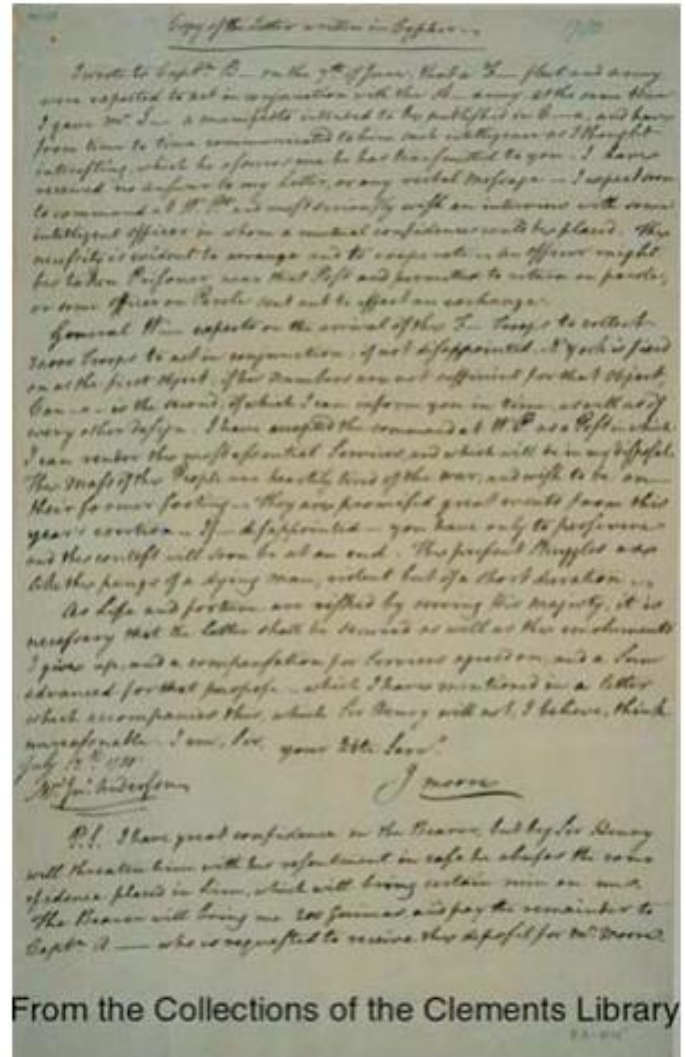 Copy of the Letter written in Cypher
1780
I wrote to Captn B— on the 7th of June, that a F— fleet and army
were expected to act in conjunction with the A— army, at the same time
I gave Mr. S— a manifesto intended to be published in C-n-a, and have
from time to time communicated to him such intelligence as I thought
interesting, which he assures me he has transmitted to you. I have
received no answer to my Letter, or any verbal Message — I expect soon
to command at W. Pt and most seriously wish an interview with some
intelligent officer in whom a mutual confidence could be placed. The
necessity is evident to arrange and to cooperate — An officer might
be taken Prisoner near that Post and permitted to return on parole,
or some officer on Parole sent out to effect an exchange.
General W— expects on the arrival of the F— Troops to collect
Troops to act in conjunction; if not disappointed, N. York is fixed
on as the first Object, if his numbers are not sufficient for that Object,
Can-a- is the second; of which I can inform you in time, as well as of
every other design. I have accepted the command at W. P. as a Post in which
I can render the most essential Services, and which will be in my disposal.
The mass of the People are heartily tired of the war, and wish to be on
their former footing — They are promised great events from this
year's exertion — If — disappointed — you have only to persevere
and the contest will soon be at an end. The present Struggles are
like the pangs of a dying man, violent but of a short duration —
As Life and fortune are risked by serving His Majesty, it is
necessary that the latter shall be secured as well as the emoluments
I give up, and a compensation for Services agreed on, and a Sum
advanced for that purpose — which I have mentioned in a letter
which accompanies this, which Sir Henry will not, I believe, think
unreasonable. I am, Sir, your Hble Servt.
July 12th 1780
Mr Jno. Anderson J moore
P.S. I have great confidence in the Bearer, but beg Sir Henry
will threaten him with his resentment in case he abuses the con-
fidence placed in him, which will bring certain ruin on me.
The Bearer will bring me 200 Guineas, and pay the remainder to
Captn A— who is requested to receive the deposit for Mr. Moore.
From the Collections of the Clements Library